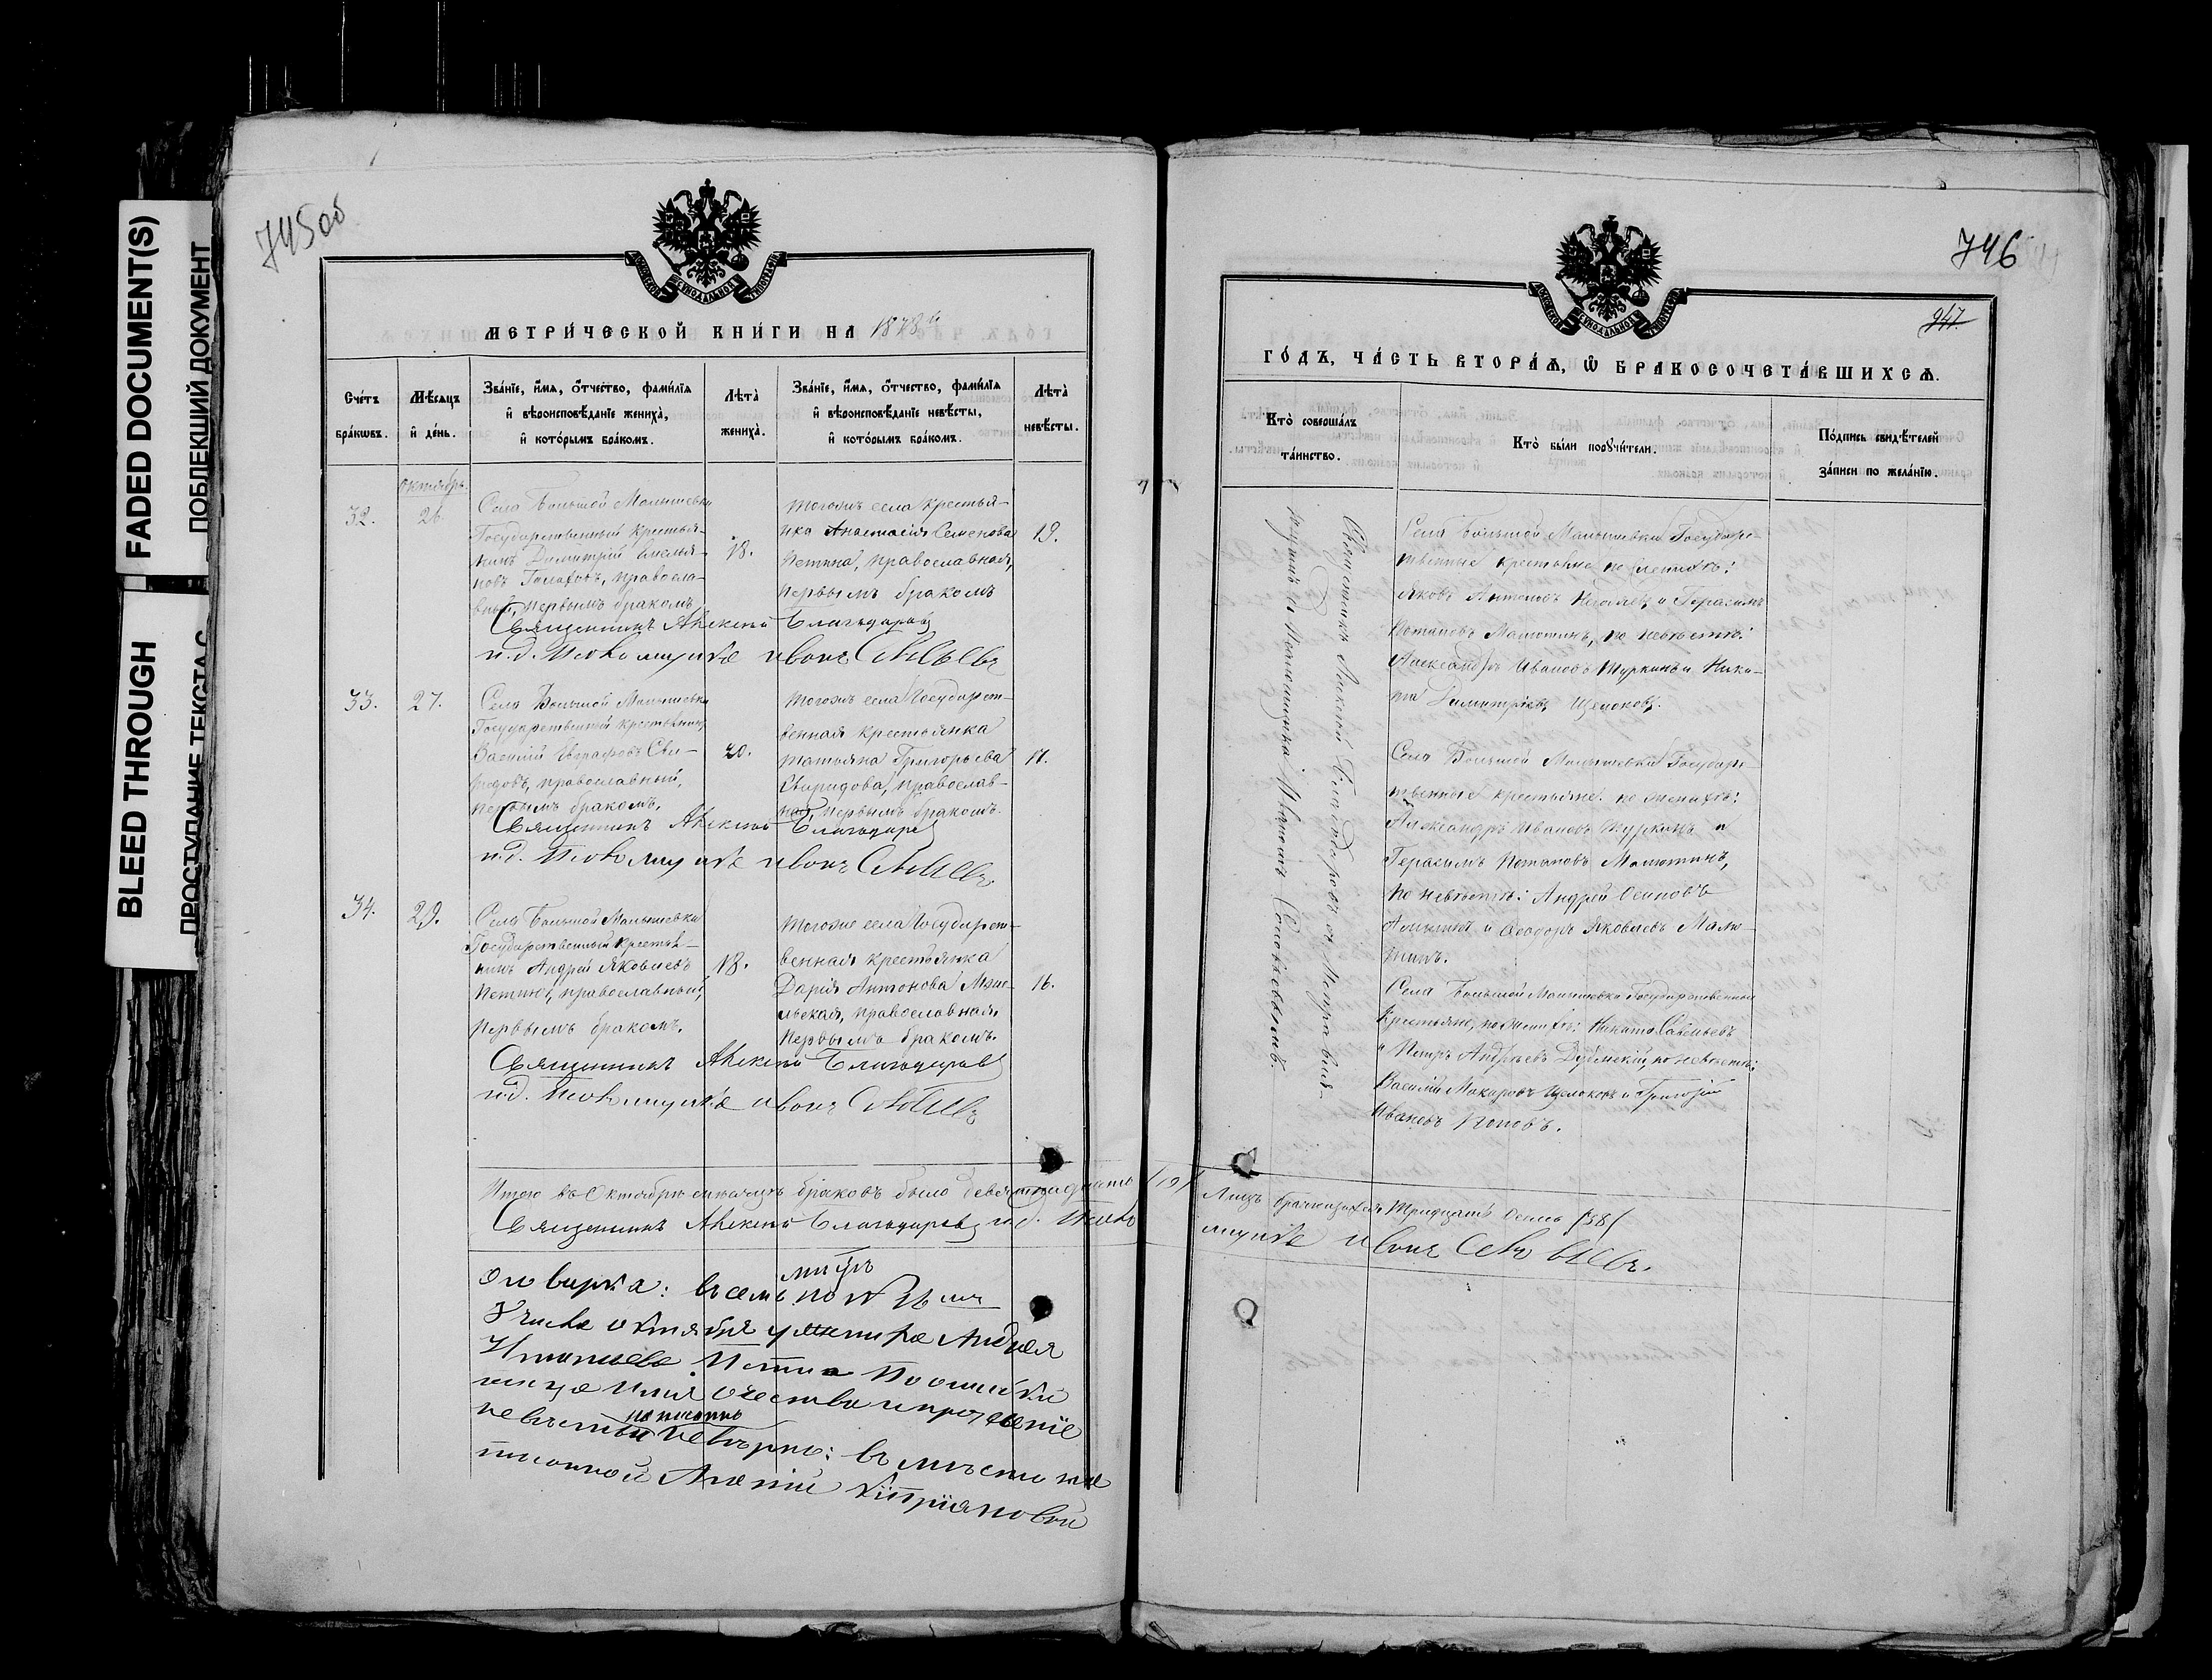 FADED DOCUMENT(S)
ПОБЛЕКШИЙ ДОКУМЕНТ
BLEED THROUGH
ПРОСТУПАНИЕ ТЕКСТА С
745об
МЕТРИ́ЧЕСКОЙ КНИ́ГИ НА 1878й
Сче́тъ бра́кѡвъ.
Мѣ́сѧцъ и҆ де́нь.
Зва́нїе, и҆́мѧ, ѻ҆́тчество, фами́лїѧ
и҆ вѣроисповѣ́данїе жениха̀,
и҆ кото́рымъ бра́комъ.
Лѣта̀ жениха̀.
Зва́нїе, и҆́мѧ, ѻ҆́тчество, фами́лїѧ
и҆ вѣроисповѣ́данїе невѣ́сты,
и҆ кото́рымъ бра́комъ.
Лѣта̀ невѣ́сты.
Октябрь.
32.
26.
Села Большой Малышевки
Государственный крестья-
нинъ Димитрій Емелья-
новъ Голаховъ, правосла-
вный, первымъ бракомъ
18.
Тогожъ села крестья-
нка Анастасія Семенова
Петина, православная,
первымъ бракомъ
19.
Священникъ Алексѣй Благодаровъ
и.д. Псаломщика Иванъ
33.
27.
Села Большой Малышевки
Государственный крестьянинъ
Василій Евграфовъ Сви-
ридовъ, православный,
первымъ бракомъ.
20.
Тогожъ села Государст-
венная крестьянка
Татьяна Григорьева
Свиридова, православ-
ная, первымъ бракомъ.
17.
Священникъ Алексѣй Благодаровъ
и.д. Псаломщика Иванъ
34.
29.
Села Большой Малышевки
Государственный крестья-
нинъ Андрей Яковлевъ
Петинъ, православный,
первымъ бракомъ.
18.
Тогоже села Государст-
венная крестьянка
Дарія Антонова
православная,
первымъ бракомъ.
16.
Священникъ Алексѣй Благодаровъ
и.д. Псаломщика Иванъ
Итого въ Октябрѣ мѣсяцѣ браковъ было девятнадцать /19/
Священникъ Алексѣй Благодаровъ и.д. Псало
Оговорка: въ семъ по №
числа октября Андрея
Петина По ошибки
имя отчество и прозваніе
невѣсты написанно невѣрно: въ мѣсто на
писанной Кипріяновой
746
247
ГО́ДЪ, ЧА́СТЬ ВТОРА́Ѧ, Ѽ БРАКОСОЧЕТА́ВШИХСѦ.
Кто̀ соверша́лъ та́инство.
Кто̀ бы́ли порꙋчи́тели.
По́дпись свидѣ́телей
за́писи по жела́нїю.
Священникъ Алексѣй Благодаровъ съ исправля-
ющимъ Псаломщика Иваномъ
Села Большой Малышевки Государс-
твенные крестьяне по женихѣ:
Яковъ Антоновъ и Герасимъ
Потаповъ Малютинъ, по невѣстѣ:
Александръ Ивановъ Туркинъ и Ники-
та Димитріевъ Щелоковъ.
Села Большой Малышевки Государс-
твенные крестьяне. по женихѣ:
Александръ Ивановъ Туркинъ и
Герасимъ Потаповъ Малютинъ,
по невѣстѣ: Андрей Осиповъ
и Ѳеодоръ Яковлевъ Малю-
тинъ.
Села Большой Малышевки Государственные
крестьяне, по женихѣ: Никита Савельевъ
и Петръ Андреевъ Дубенскій, по невѣстѣ:
Василій Макаровъ Щелоковъ и Григорій
Ивановъ Поповъ.
Лицъ брачившихся тридцать восемь /38/
мщика Иванъ